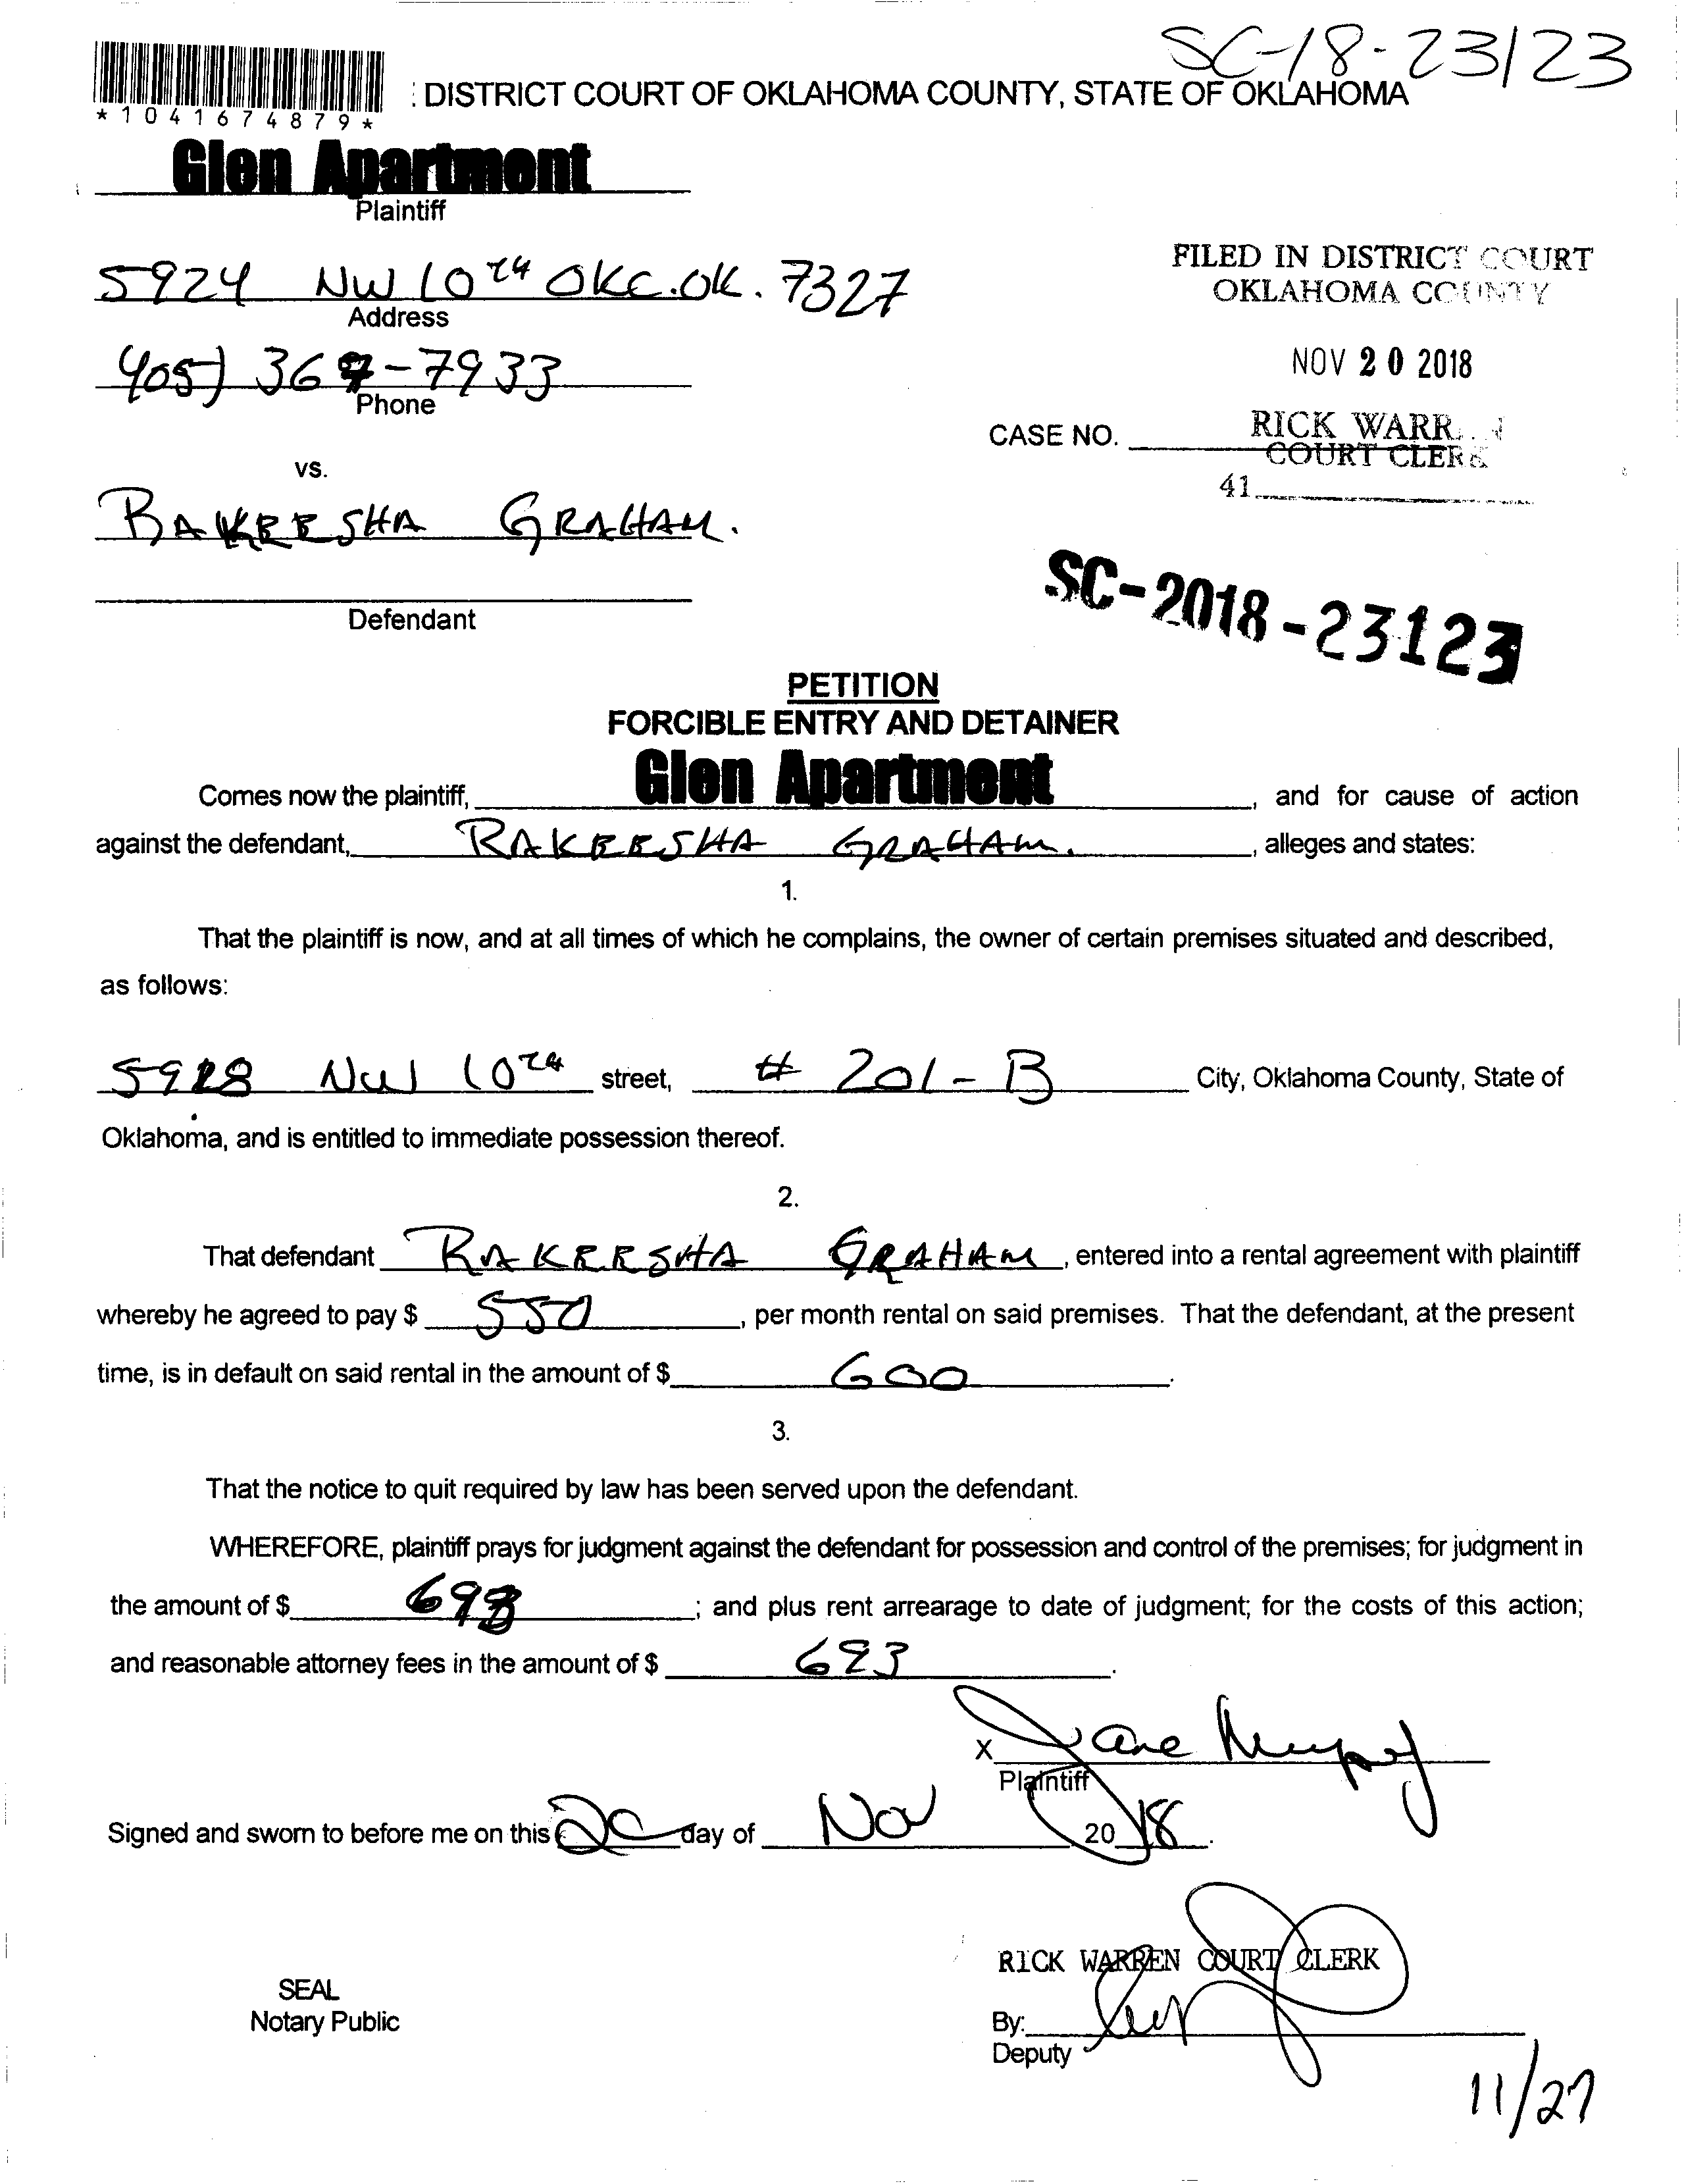 SC-18-23123
*1041674879*
: DISTRICT COURT OF OKLAHOMA COUNTY, STATE OF OKLAHOMA
Glen Apartment
Plaintiff
5924 NW 10th OKC. OK. 7327
Address
FILED IN DISTRICT COURT
OKLAHOMA COUNTY
405) 36 -7933
Phone
NOV 20 2018
CASE NO.
RICK WARR
COURT CLERK
41
vs.
RAKEESHA GRAHAM.
Defendant
SC-2018-23123
PETITION
FORCIBLE ENTRY AND DETAINER
Comes now the plaintiff, Glen Apartment, and for cause of action
against the defendant, RAKEESHA GRAHAM., alleges and states:
1.
That the plaintiff is now, and at all times of which he complains, the owner of certain premises situated and described,
as follows:
5928 NW 10th street, # 201-B City, Oklahoma County, State of
Oklahoma, and is entitled to immediate possession thereof.
2.
That defendant RAKEESHA GRAHAM, entered into a rental agreement with plaintiff
whereby he agreed to pay $ 550, per month rental on said premises. That the defendant, at the present
time, is in default on said rental in the amount of $ 600.
3.
That the notice to quit required by law has been served upon the defendant.
WHEREFORE, plaintiff prays for judgment against the defendant for possession and control of the premises; for judgment in
the amount of $ 693; and plus rent arrearage to date of judgment; for the costs of this action;
and reasonable attorney fees in the amount of $ 693.
X
Plaintiff
Signed and sworn to before me on this 20 day of Nov 2018.
RICK WARREN COURT CLERK
SEAL
Notary Public
By:
Deputy
11/27